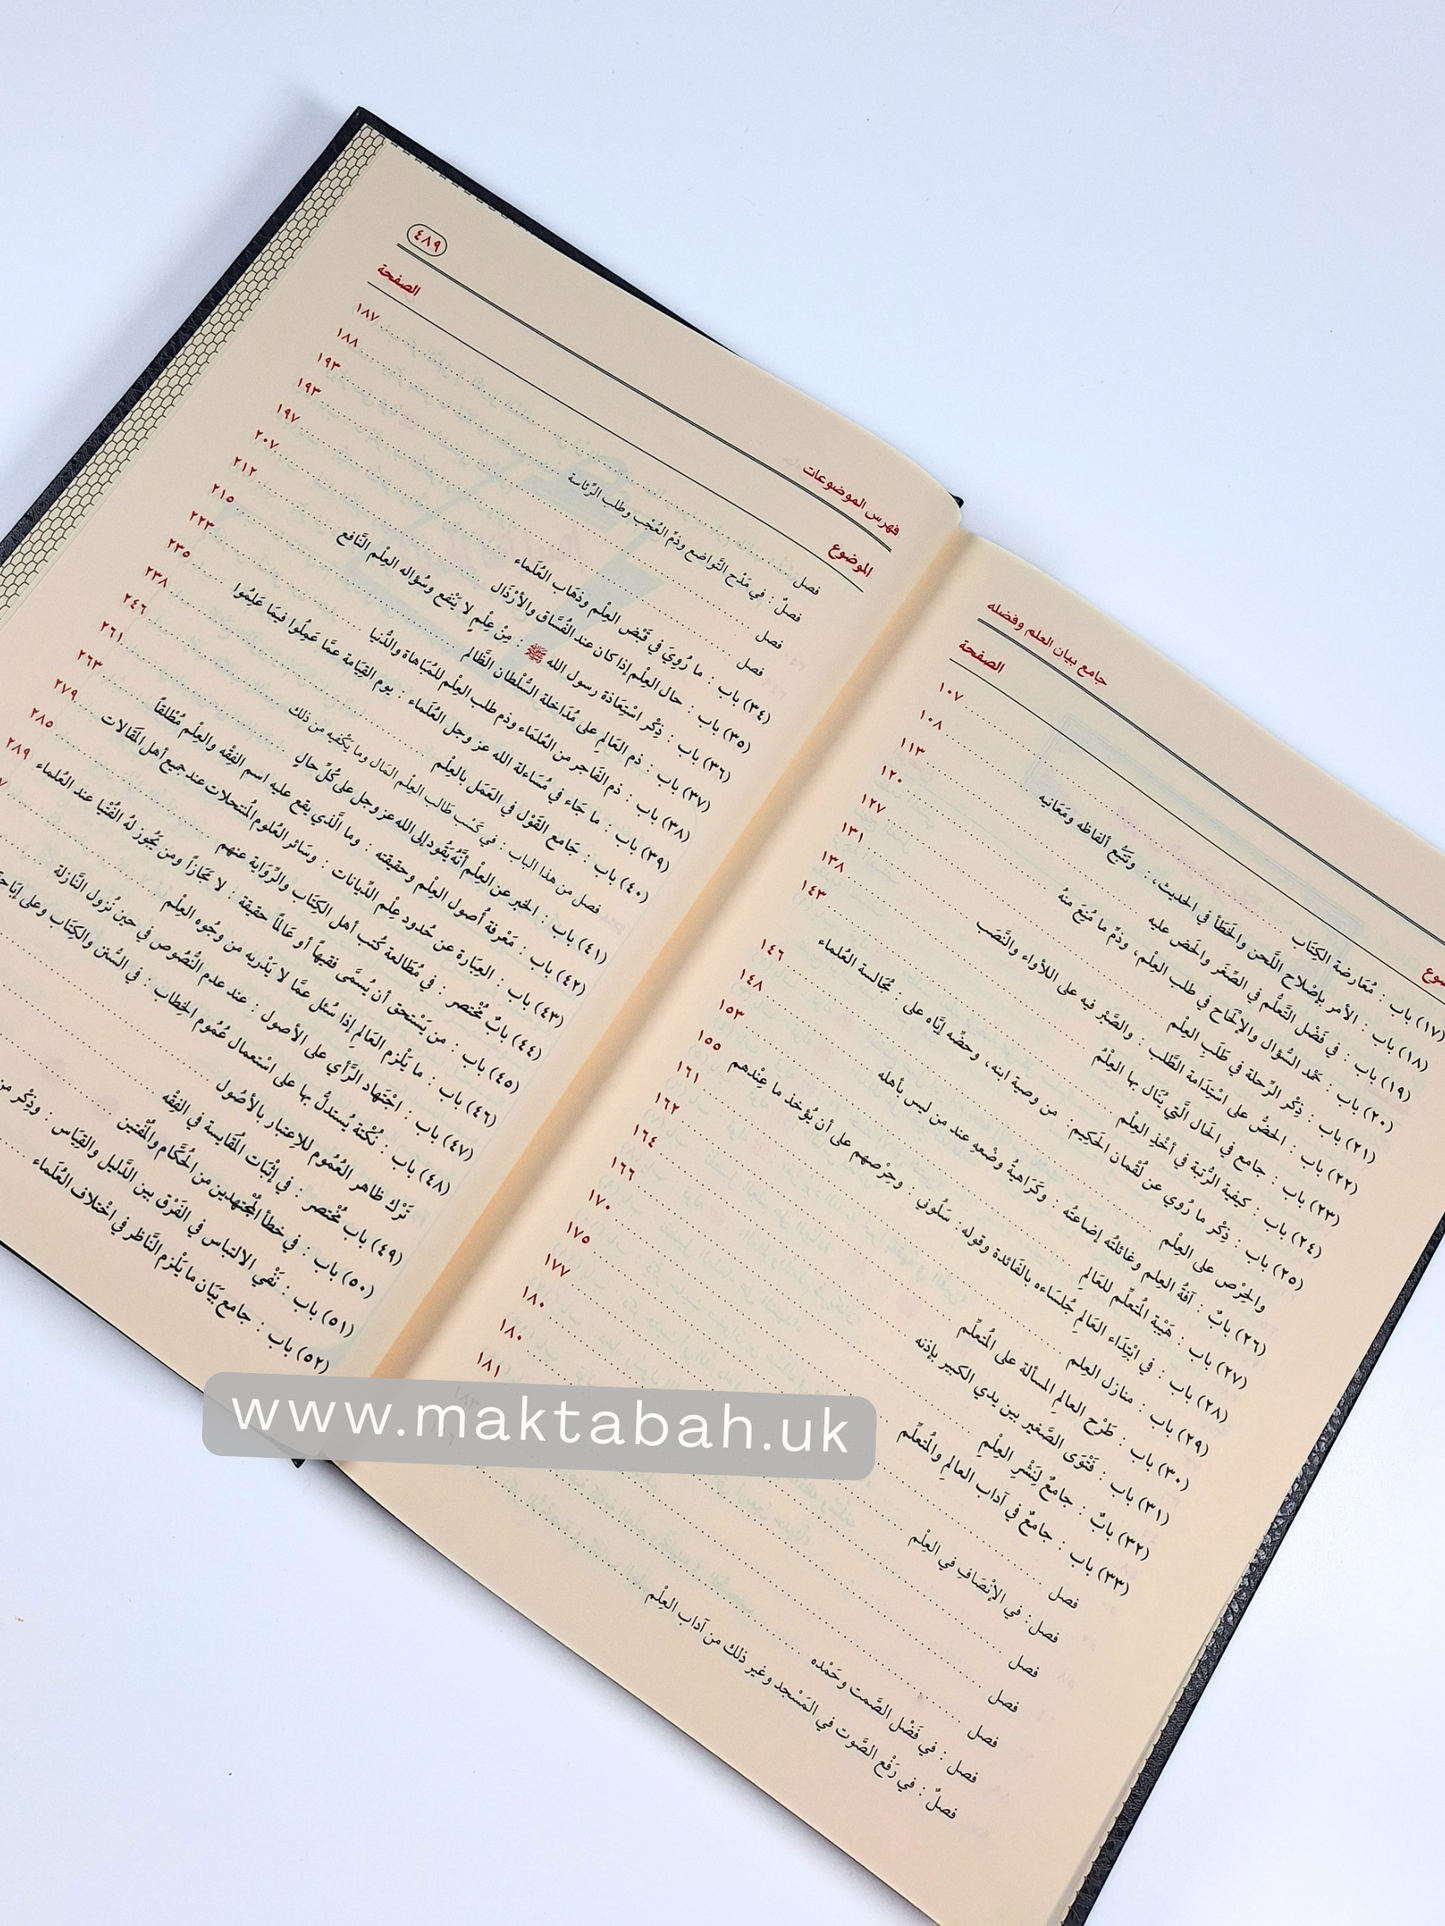 جامع بيان العلم وفضله
الصفحة
(١٧) باب : مُعَارضة الكِتَاب
١٠٧
(١٨) باب : الأمر بإصْلاح اللَّحن والخَطَأ في الحديث ، : وتَتَبُّع ألفاظه ومَعَانيه
١٠٨
(١٩) باب : في فَضْل التَّعلُّم في الصِّغَر والحَض عليه
١١٣
(٢٠) باب : حَمْد السُّؤال والإلْحَاح في طلب العِلْم، وذمِّ ما مُنِعَ منهُ
١٢٠
(٢١) باب : ذِكْر الرِّحلة في طَلَبِ العِلْم
١٢٧
(٢٢) باب : الحَضُّ على اسْتِدَامة الطَّلب : والصَّبْر فيه على اللأواء والنَّصَب
١٣١
(٢٣) باب : جامع في الحَال الَّتي يُنَال بها العِلْمُ
١٣٨
(٢٤) باب : كيفية الرُّتبة في أخْذِ العِلْم
١٤٣
(٢٥) باب : ذِكْر ما رُوي عن لُقْمان الحَكِيم : من وصية ابنه ، وحضِّه إيَّاه على : مُجَالسة العُلماء
والحِرْص على العِلْم
١٤٦
(٢٦) بابٌ : آفةُ العِلم وغائلتُه إضاعتُه : وكَرَاهيةُ وضْعهِ عند من ليس بأهله
١٤٨
(٢٧) باب : هَيْبة المُتعلِّم للعَالمِ
١٥٣
(٢٨) باب : في ابْتِدَاء العَالمِ جُلسَاءه بالفَائدة وقوله : سَلُوني : وحِرْصهم على أن يُؤخذ ما عِنْدهم
١٥٥
(٢٩) باب : منازل العِلم
١٦١
(٣٠) باب : طَرْح العالمِ المسألة على المُتعلِّم
١٦٢
(٣١) باب : فَتْوَى الصَّغير بين يدي الكبير بإذنه
١٦٤
(٣٢) بابٌ : جامعٌ لِنَشْرِ العِلْمِ
١٦٦
(٣٣) باب : جامعٌ في آداب العالمِ والمُتعلِّم
١٧٠
فصل
١٧٥
فصل : في الإنْصَافِ في العِلْم
١٧٧
فصل
١٨٠
فصل
١٨٠
فصل
١٨١
فصل : في فَضْل الصَّمت وحَمْده
فصلٌ : في رَفْع الصَّوت في المَسْجد وغير ذلك من آداب العِلْم
٤٨٩
فهرس الموضوعات
الموضوع
الصفحة
فصل
١٨٧
فصلٌ : في مَدْح التَّواضع وذمِّ العُجْب وطلب الرِّئاسة
١٨٨
فصل
١٩٣
فصل
١٩٣
(٣٤) باب : ما رُوِيَ في قَبْض العِلْم وذهَاب العُلَماء
١٩٧
(٣٥) باب : حال العِلْم إذا كان عند الفُسَّاق والأرْذَال
٢٠٧
(٣٦) باب : ذِكْر اسْتِعَاذة رسول الله ﷺ : مِنْ عِلْمٍ لا يَنْفع وسُؤاله العِلْم النَّافع
٢١٢
(٣٧) باب : ذم العَالمِ على مُدَاخلة السُّلْطان الظَّالم
٢١٥
(٣٨) باب : ذم الفَاجر من العُلمَاء وذم طلب العِلْم للمُبَاهاة والدُّنيا
٢٢٣
(٣٩) باب : ما جَاء في مُسَاءلة الله عز وجل العُلَماء : يوم القِيَامة عمَّا عَمِلُوا فيمَا عَلِمُوا
٢٣٥
(٤٠) باب : جَامع القَوْل في العَمَل بالعِلْم
٢٣٨
فصل من هذا الباب : في كَسْب طَالب العِلْم المَال وما يَكْفيه من ذلك
٢٤٦
(٤١) باب : الخبر عن العِلْم أنَّهُ يَقُود إلى الله عز وجل على كُلِّ حالٍ
٢٦١
(٤٢) باب : مَعْرفة أُصول العِلْم وحقيقته : وما الَّذي يقع عليه اسم الفِقْه والعِلْم مُطْلقاً
٢٦٣
(٤٣) باب : العِبَارة عن حُدود عِلْم الدِّيانات : وسَائر العُلوم المُنتحلات عند جميع أهل المَقَالات
٢٧٩
(٤٤) بابٌ مُخْتصر : في مُطَالعة كُتب أهل الكِتَاب والرِّوَاية عنهم
٢٨٥
(٤٥) باب : من يَسْتحق أن يُسمَّى فقيهاً أو عَالماً حقيقة : لا مَجَازاً ومن يَجُوز لهُ الفُتْيَا عند العُلماء
٢٨٩
(٤٦) باب : ما يَلْزم العَالمِ إذا سُئل عمَّا لا يَدْريه من وجُوه العِلْم
(٤٧) باب : اجْتِهاد الرَّأي على الأصول : عند عدم النُّصُوص في حين نُزول النَّازلة
(٤٨) باب : نُكْتة يُستدلُّ بها على اسْتعمال عُمُوم الخِطاب : في السُّنن والكِتَاب وعلى
تَرْك ظاهر العُمُوم للاعتبار بالأُصُول
(٤٩) باب مُخْتصر : في إثْبَات المُقَايسة في الفِقْه
(٥٠) باب : في خطأ المُجْتهدين من الحُكَّام والمُفْتين
(٥١) باب : نَفْي الالتباس في الفَرْق بين الدَّليل والقِيَاس : وذِكْر
(٥٢) باب : جامع بَيَان ما يَلْزم النَّاظر في اخْتلاف العُلَماء
www.maktabah.uk